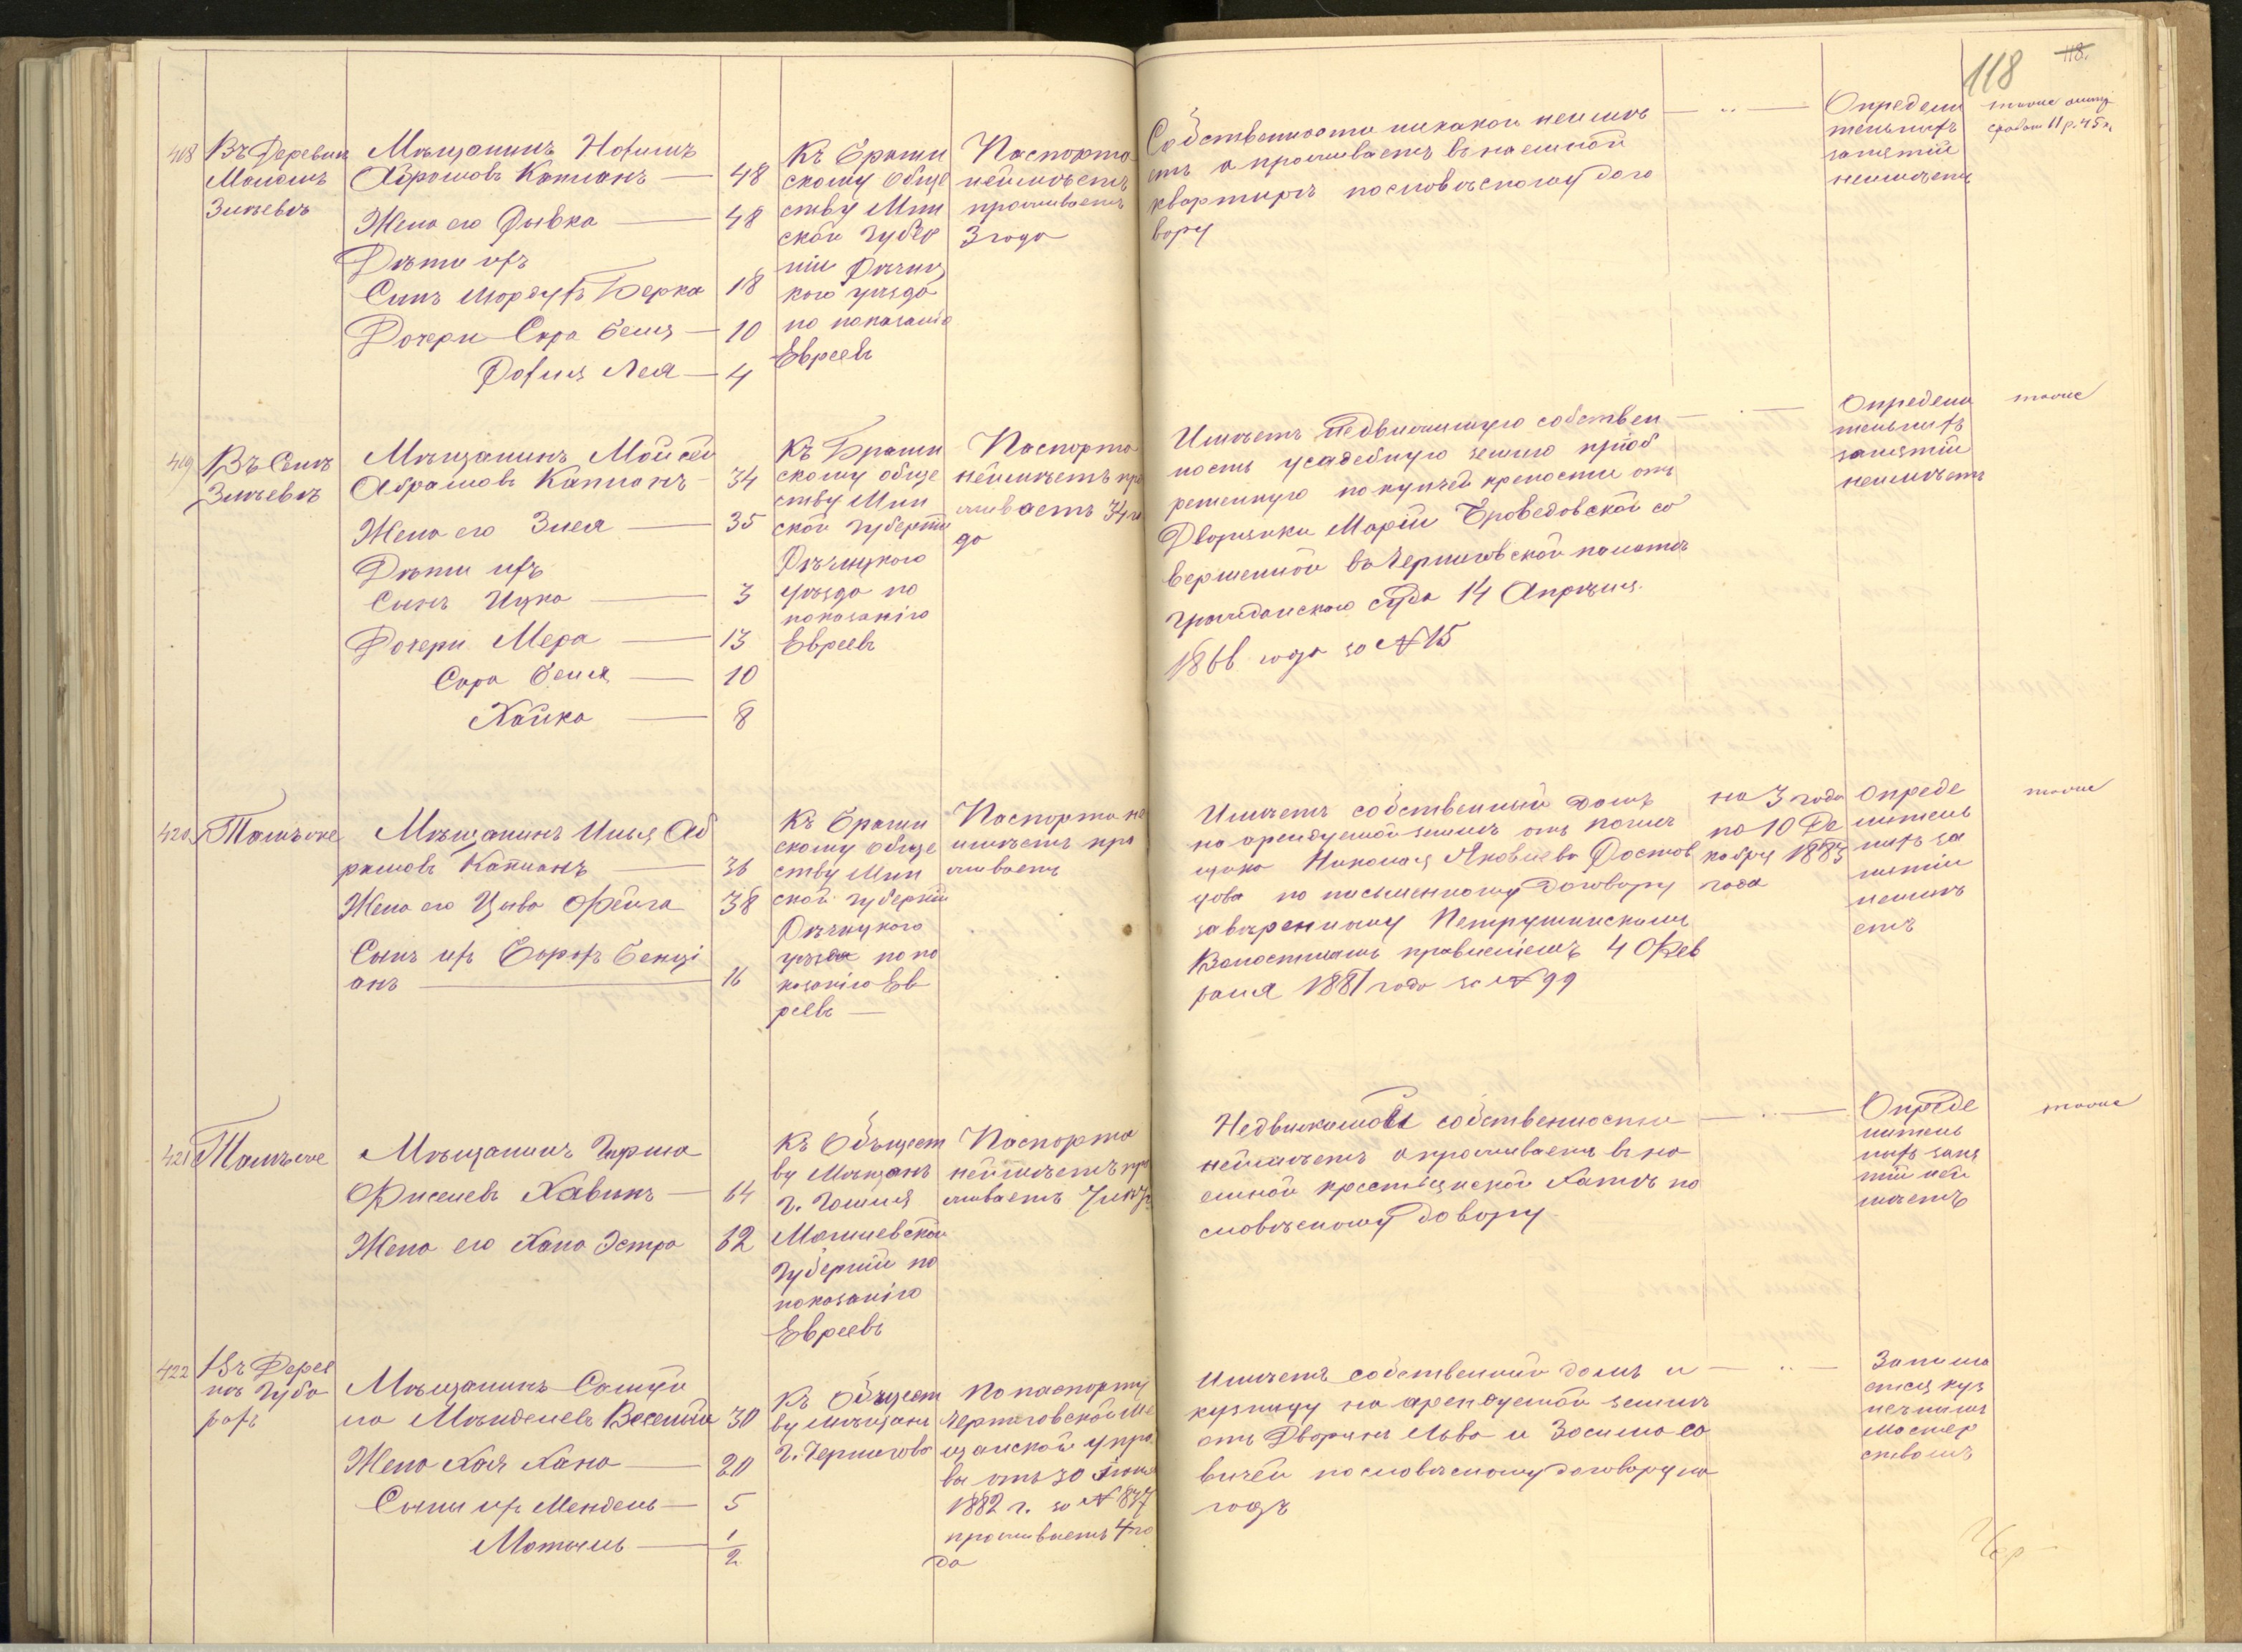 118
118.
408
Въ Деревни
Маломъ
Злѣевѣ
Мѣщанинъ Нохимъ
Абрамовъ Капланъ — 48
Жена его Рывка — 48
Дѣти ихъ
Сынъ Мордухъ Берка 18
Дочери Сора Бейля — 10
Рохля Лея — 4
Къ Браги
скому обще
ству Мин
ской губер
ніи Рѣчиц
кого уѣзда
по показанію
Евреевъ
Паспорта
неимѣетъ
проживаетъ
3 года
Собственности никакой неимѣ
етъ а проживаетъ въ наемной
квартирѣ пословѣсному дого
вору
— „ —
Определи
тельныхъ
занятій
неимѣетъ
419
Въ Селѣ
Злѣевѣ
Мѣщанинъ Мойсей
Абрамовъ Капланъ — 34
Жена его Злея — 35
Дѣти ихъ
Сынъ Ицка — 3
Дочери Мера — 13
Сора Бейля — 10
Хайка — 8
Къ Браги
скому обще
ству Мин
ской губерніи
Рѣчицкого
уѣзда по
показанію
Евреевъ
Паспорта
неимѣетъ про
живаетъ 34 го
да
Имѣетъ недвижимую собствен
ность усадебную землю пріоб
ретенную по купчей крепости отъ
Дворянки Маріи со
вершенной въ Черниговской палатѣ
гражданского суда 14 Апрѣля
1866 года за № 15
— „ —
Определи
тельныхъ
занятій
неимѣетъ
тоже
420
Тамъже
Мѣщанинъ Илья Аб
рамовъ Капланъ — 36
Жена его Цыва Фейга 38
Сынъ ихъ Борохъ Бенці
анъ — 16
Къ Браги
скому обще
ству Мин
ской губерніи
Рѣчицкого
уѣзда по по
казанію Ев
реевъ —
Паспорта не
имѣетъ про
живаетъ
Имѣетъ собственный домъ
на арендуемой землѣ отъ помѣ
щика Николая Яковлева Ростов
цова по письменному договору
завѣренному Петрушинскимъ
Волостнымъ правленіемъ 4 Фев
раля 1881 года за № 99
на 3 года
по 10 Де
кабря 1883
года
Опреде
литель
ныхъ за
нятій
неимѣ
етъ
тоже
421
Тамъже
Мѣщанинъ Гирша
Фиселевъ Хавинъ — 64
Жена его Хана Эстра 62
Къ Обществ
ву Мѣщанъ
г. Гомеля
Могилевской
губерніи по
показанію
Евреевъ
Паспорта
неимѣетъ про
живаетъ 7 лѣтъ
Недвижимой собственности
неимѣетъ а проживаетъ въ на
емной крестьянской хатѣ по
словѣсному довору
— „ —
Опреде
литель
ныхъ заня
тій неи
мѣетъ
тоже
422
Въ Дерев
нѣ Губа
рахъ
Мѣщанинъ Самуй
ла Мѣнделевъ 30
Жена Хая Хана — 20
Сыны ихъ Мендель — 5
Мотыль — 1/2
Къ Обществ
ву мѣщанъ
г. Чернигова
По паспорту
Черниговской Ме
щанской упра
вы отъ 30 Іюня
1882 г. за № 837
проживаетъ 4 го
да
Имѣетъ собственный домъ и
кузницу на арендуемой землѣ
отъ Дворянъ Льва и Зосима Са
вичей пословѣсному договору на
годъ
— „ —
Занима
ется куз
нечнымъ
мастер
ствомъ